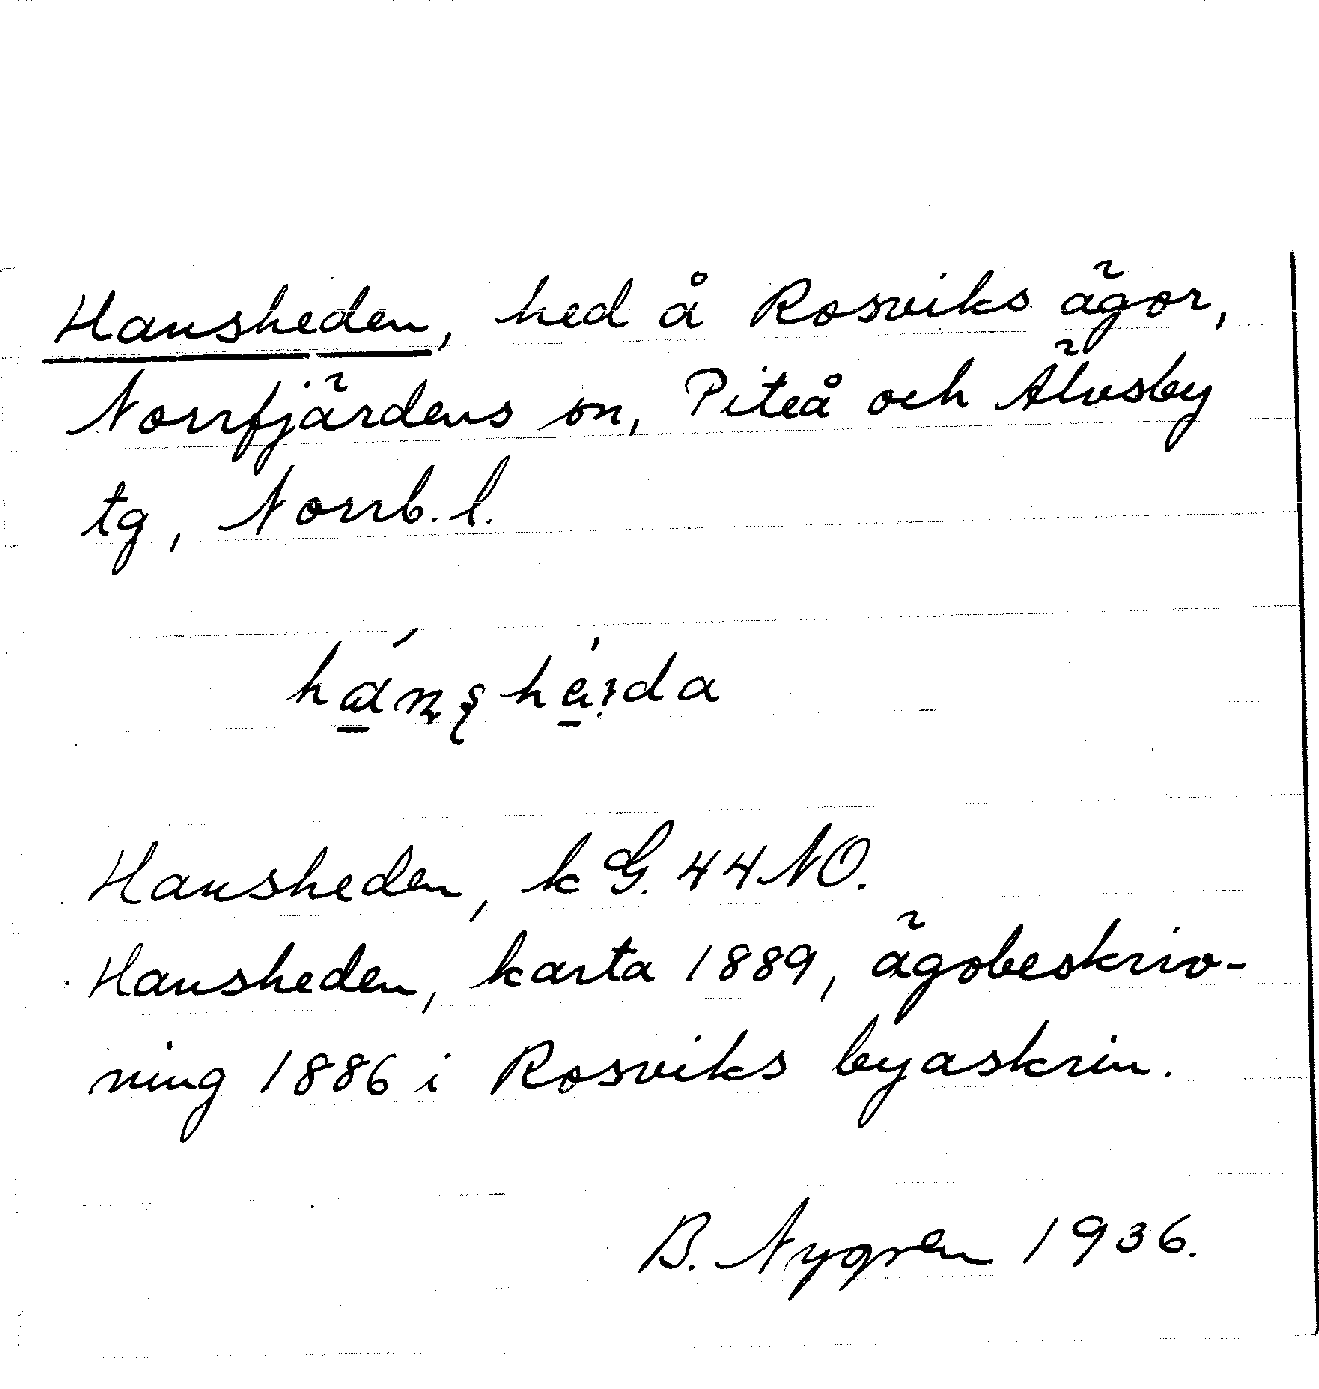 Hansheden, hed å Rosviks ägor,
Norrfjärdens sn, Piteå och Älvsby
tg, Norrb. l.
Hansheden, kG. 44 NO.
Hansheden, karta 1889, ägobeskriv-
ning 1886 i Rosviks byaskrin.
B. Nygren 1936.